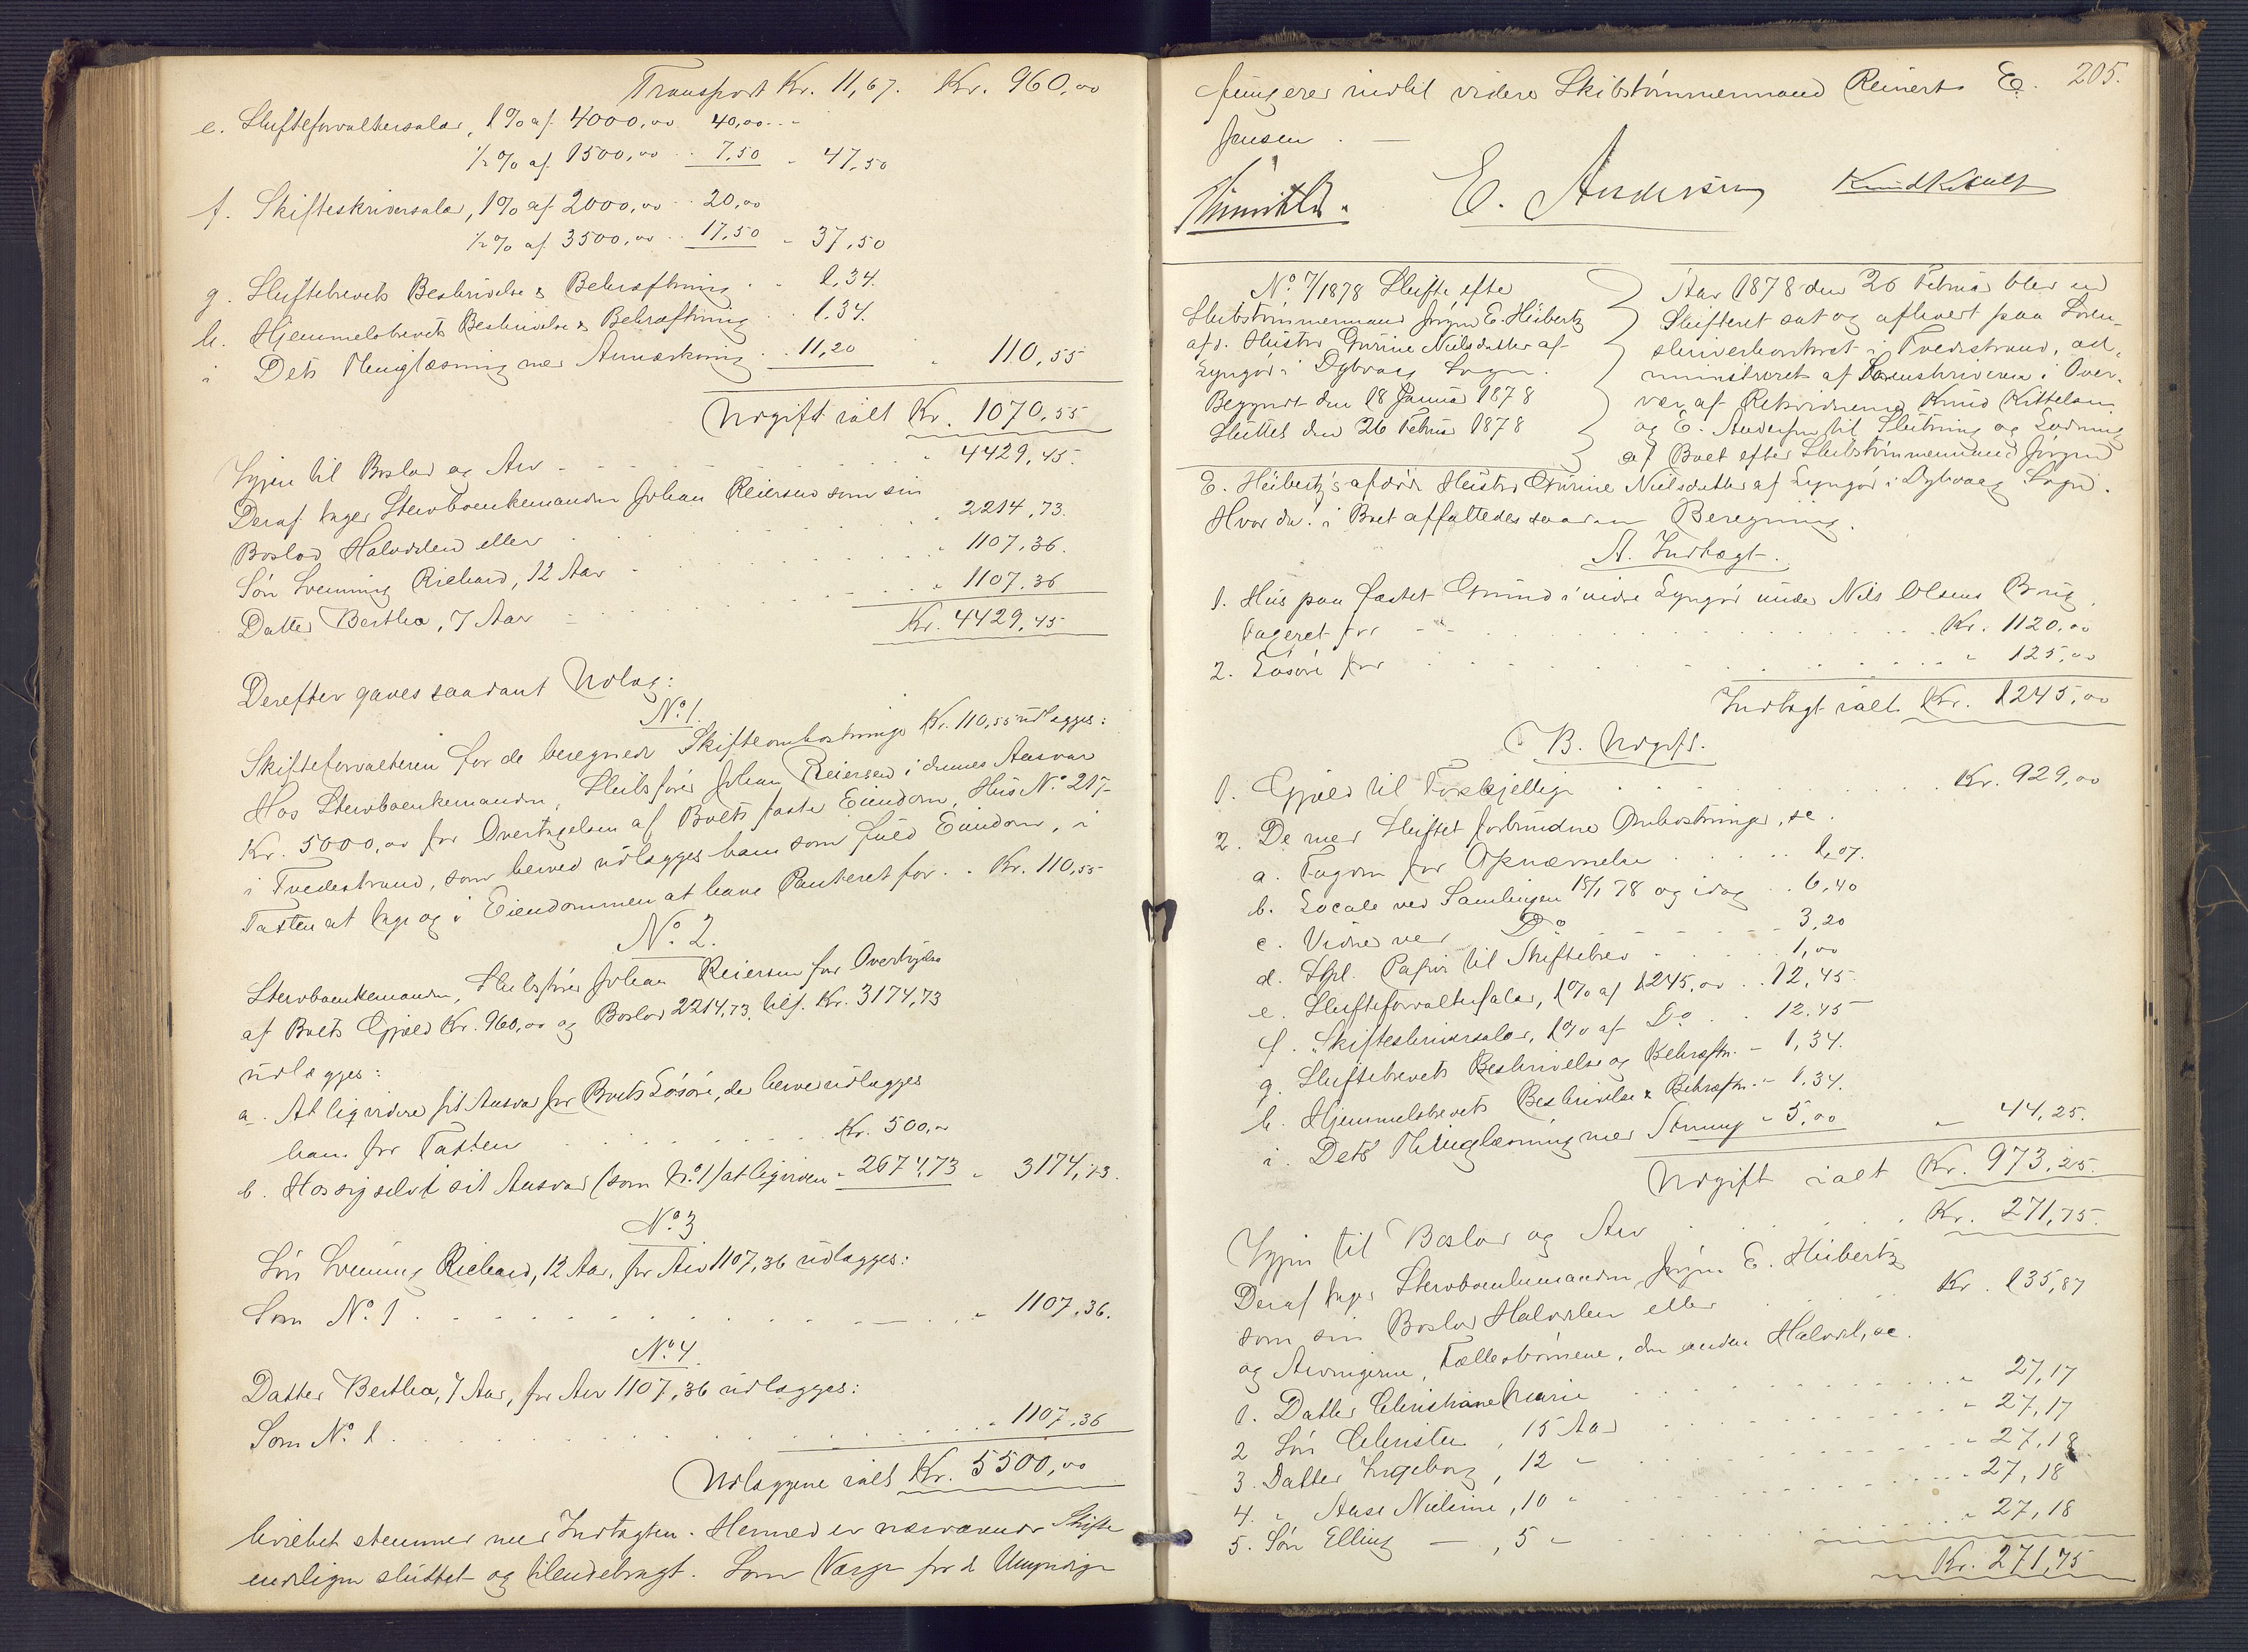 Transport Kr. 11,67. Kr. 960,00
e. Skifteforvaltersalær, 1% af 4000,00 40,00
½% af 1500,00 7,50 " 47,50
f. Skifteskriversalær, 1% af 2000,00 20,00
½% af 3500,00 17,50 " 37,50
g. Skiftebrevets Beskrivelse & Bekræftning 1,34.
h. Hjemmelsbrevets Beskrivelse & Bekræftning 1.34.
i Dets Thinglæsning med Anmærkning 11,20 " 110,55
Udgift ialt Kr. 1070,55
Igjen til Boslod og Arv " 4429,45.
Deraf tager Stervboenkemanden Johan Reiersen som sin
Boslod Halvdelen eller " 2214,73.
Søn Svenning Richard, 12 Aar " 1107,36.
Datter Bertha, 7 Aar " 1107.36
Kr. 4429,45
Derefter gaves saadant Udlæg:
No. 1.
Skifteforvalteren for de beregnede Skifteomkostninger Kr. 110,55 udlægges:
Hos Stervboenkemanden, Skibsfører Johan Reiersen i dennes Ansvar
Kr. 5000,00 for Overtagelsen af Boets faste Eiendom, Hus No. 217
i Tvedestrand, som herved udlægges ham som fuld Eiendom, i
Taxten at tage og i Eiendommen at have Panteret for Kr. 110,55
No. 2.
Stervboenkemanden, Skibsfører Johan Reiersen for Overtagelse
af Boets Gjæld Kr. 960,00 og Boslod 2214,73, tils. Kr. 3174,73
udlægges:
a. At liqvidere sit Ansvar for Boets Løsøre, der herved udlægges
ham for Taxten Kr. 500,00
b. Hos sig selv i sit Ansvar (som No. 1) at liqvidere " 2674,73 " 3174,73.
No. 3
Søn Svenning Richard, 12 Aar, for Arv 1107,36 udlægges:
Som No. 1 " 1107,36.
No. 4.
Datter Bertha, 7 Aar, for Arv 1107,36 udlægges:
Som No. 1 " 1107,36
Udlæggene ialt Kr. 5500,00
hvilket stemmer med Indtægten. Hermed er nærværende Skifte
endeligen sluttet og tilendebragt. Som Værge for de Umyndige
205.
fungerer indtil videre Skibstømmermand Reinert E.
Jensen.
E. Andersen Knud Kittelsen
No. 7/1878 Skifte efter
Skibstømmermand Jørgen E. Heibertz
afd. Hustru Gurine Nielsdatter af
Lyngør i Dybvaag Sogn.
Begyndt den 18 Januar 1878
Sluttet den 26 Februar 1878
Aar 1878 den 26 Februar blev en
Skifteret sat og afholdt paa Soren-
skriverkontoret i Tvedestrand, ad-
ministreret af Sorenskriveren i Over-
vær af Retsvidnerne Knud Kittelsen
og E. Andersen til Slutning og Lodning
af Boet efter Skibstømmermand Jørgen
E. Heibertz's afdøde Hustru Gurine Nielsdatter af Lyngør i Dybvaag Sogn.
Hvorda i Boet affattedes saadan Beregning.
A. Indtægt.
1. Hus paa fæstet Grund i indre Lyngør under Nils Olsens Brug,
taxeret for Kr. 1120,00
2. Løsøre for " 125,00
Indtægt ialt Kr. 1245,00
B. Udgift.
1. Gjæld til Forskjellige Kr. 929,00
2. De med Skiftet forbundne Omkostninger, se.
a. Fogden for Opnævnelse 1,07.
b. Locale ved Samlingen 18/1 78 og idag 6,40
c. Vidner ved Do 3,20
d. Stpl. Papir til Skiftebrev 1,00
e. Skifteforvaltersalær, 1% af 1245,00 12,45
f. Skifteskriversalær, 1% af Do 12.45
g. Skiftebrevets Beskrivelse og Bekræftn. " 1,34.
h. Hjemmelsbrevets Beskrivelse & Bekræftn. " 1.34.
i. Dets Thinglæsning med " 5,00 " 44,25.
Udgift ialt Kr. 973,25.
Igjen til Boslod og Arv Kr. 271,75.
Deraf tager Stervboenkemanden Jørgen E. Heibertz
som sin Boslod Halvdelen eller Kr. 135,87
og Arvingerne, Fællesbørnene, den anden Halvdel, se.
1. Datter Christiane Marie " 27,17
2 Søn Christen, 15 Aar " 27,17
3. Datter Ingeborg, 12 " " 27,18
4. " Aase Nicline, 10 " " 27,18
5. Søn Elling —, 5 " " 27,18
Kr. 271,75